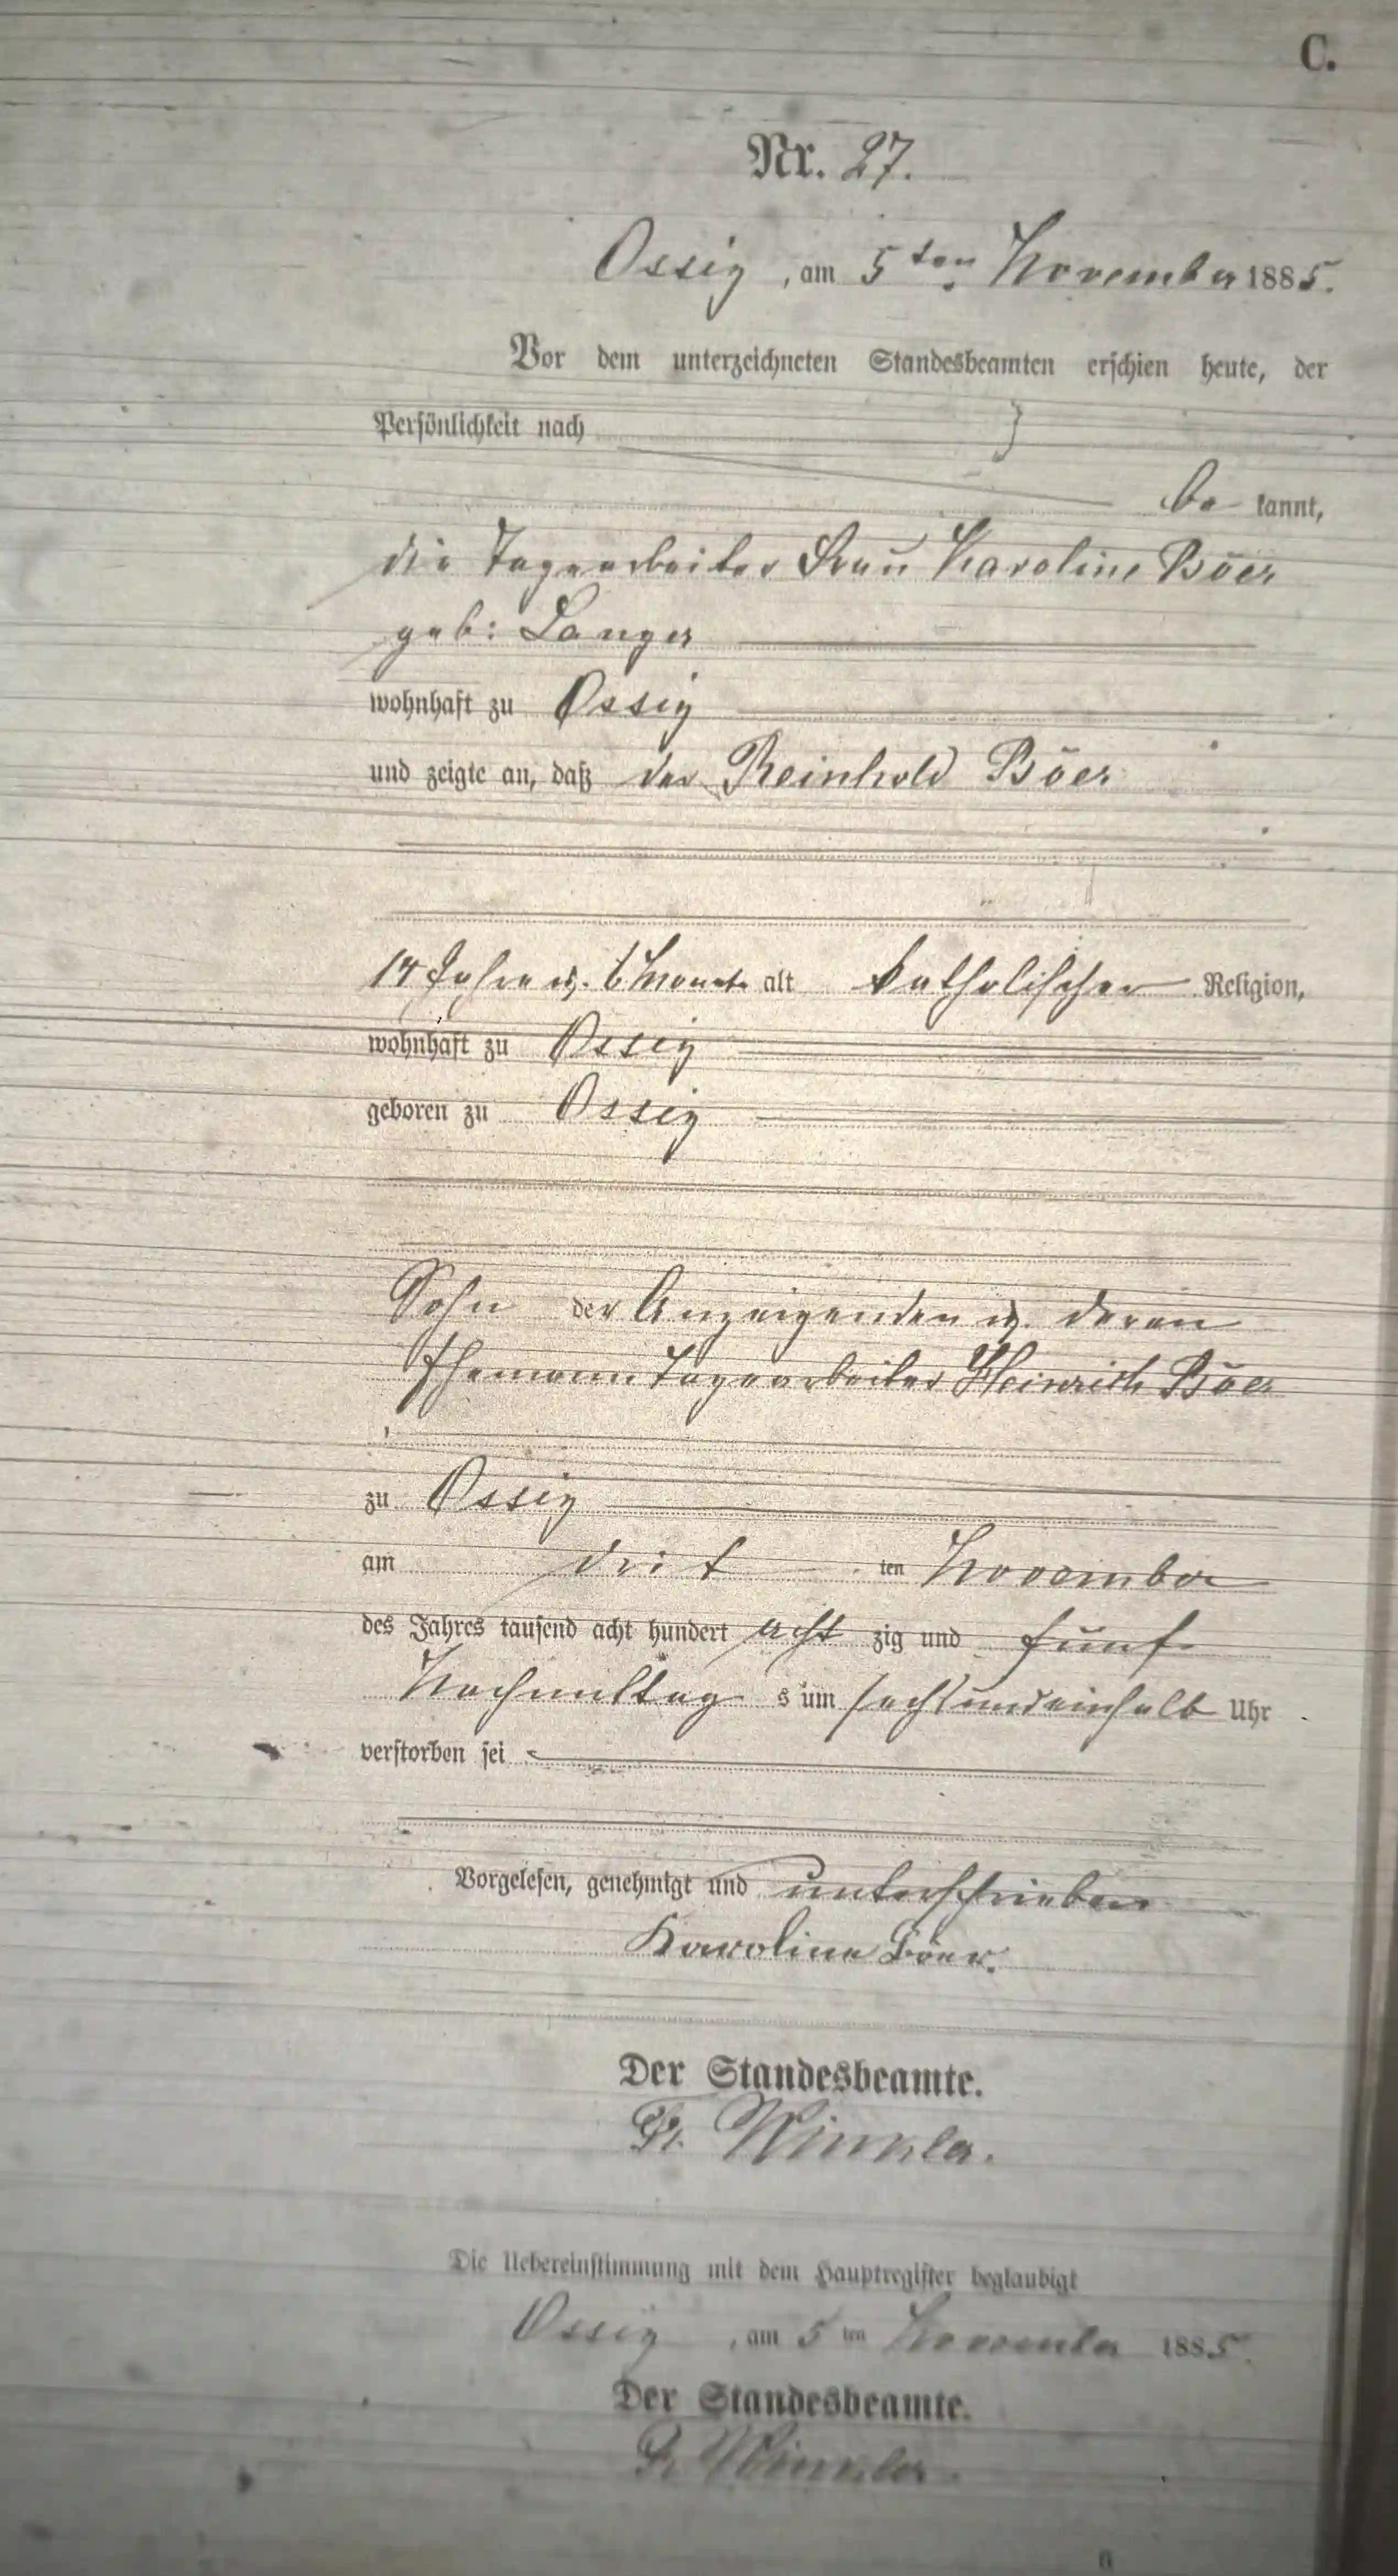 C.
Nr. 27.
Ossig, am 5ten November 1885.
Vor dem unterzeichneten Standesbeamten erschien heute, der
Persönlichkeit nach
be kannt,
die Tagearbeiter Frau Karoline Böer
geb: Langer
wohnhaft zu Ossig
und zeigte an, daß der Reinhold Böer
14 Jahre u. 6 Monate alt katholischer Religion,
wohnhaft zu Ossig
geboren zu Ossig
Sohn der Anzeigenden u. deren
Ehemann Tagearbeiter Heinrich Böer
zu Ossig
am drit ten November
des Jahres tausend acht hundert acht zig und fünf
Nachmittag s um sechsundeinhalb Uhr
verstorben sei
Vorgelesen, genehmigt und unterschrieben
Karoline Böer.
Der Standesbeamte.
Fr. Winkler.
Die Uebereinstimmung mit dem Hauptregister beglaubigt
Ossig, am 5 ten November 1885.
Der Standesbeamte.
Fr. Winkler.